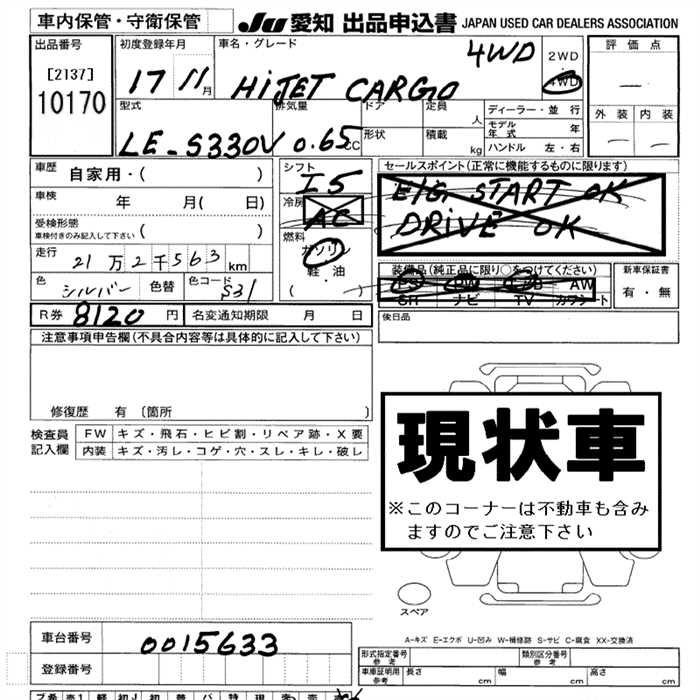 車内保管・守衛保管
Ju 愛知 出品申込書 JAPAN USED CAR DEALERS ASSOCIATION
出品番号
[2137]
10170
初度登録年月
17 11月
車名・グレード
HiJET CARGO 4WD
2WD
4WD
評価点
—
外装 内装
— —
型式
LE-S330V
排気量
0.65CC
ドア
形状
定員 人
積載 kg
ディーラー・並行
モデル年式 年
ハンドル 左・右
車歴 自家用・( )
車検 年 月( 日)
受検形態
車検付きのみ記入して下さい ( )
走行
21万2千563km
色 シルバー 色替 色コード S31
シフト I5
冷房 AC
燃料
ガソリン
軽・油
( ・ )
セールスポイント(正常に機能するものに限ります)
E/G START OK
DRIVE OK
装備品(純正品に限り○をつけてください)
PS PW エアB AW
SR ナビ TV カワシート
新車保証書
有・無
R券 8120円 名変通知期限 月 日
後日品
注意事項申告欄(不具合内容等は具体的に記入して下さい)
修復歴 有 〔箇所 〕
検査員記入欄
FW キズ・飛石・ヒビ割・リペア跡・X要
内装 キズ・汚レ・コゲ・穴・スレ・キレ・破レ
現状車
※このコーナーは不動車も含み
ますのでご注意下さい
スペア
A-キズ E-エクボ U-凹み W-補修跡 S-サビ C-腐食 XX-交換済
車台番号 0015633
登録番号
形式指定番号
参考
類別区分番号
参考
車庫証明用
参考
長さ cm 幅 cm 高さ cm